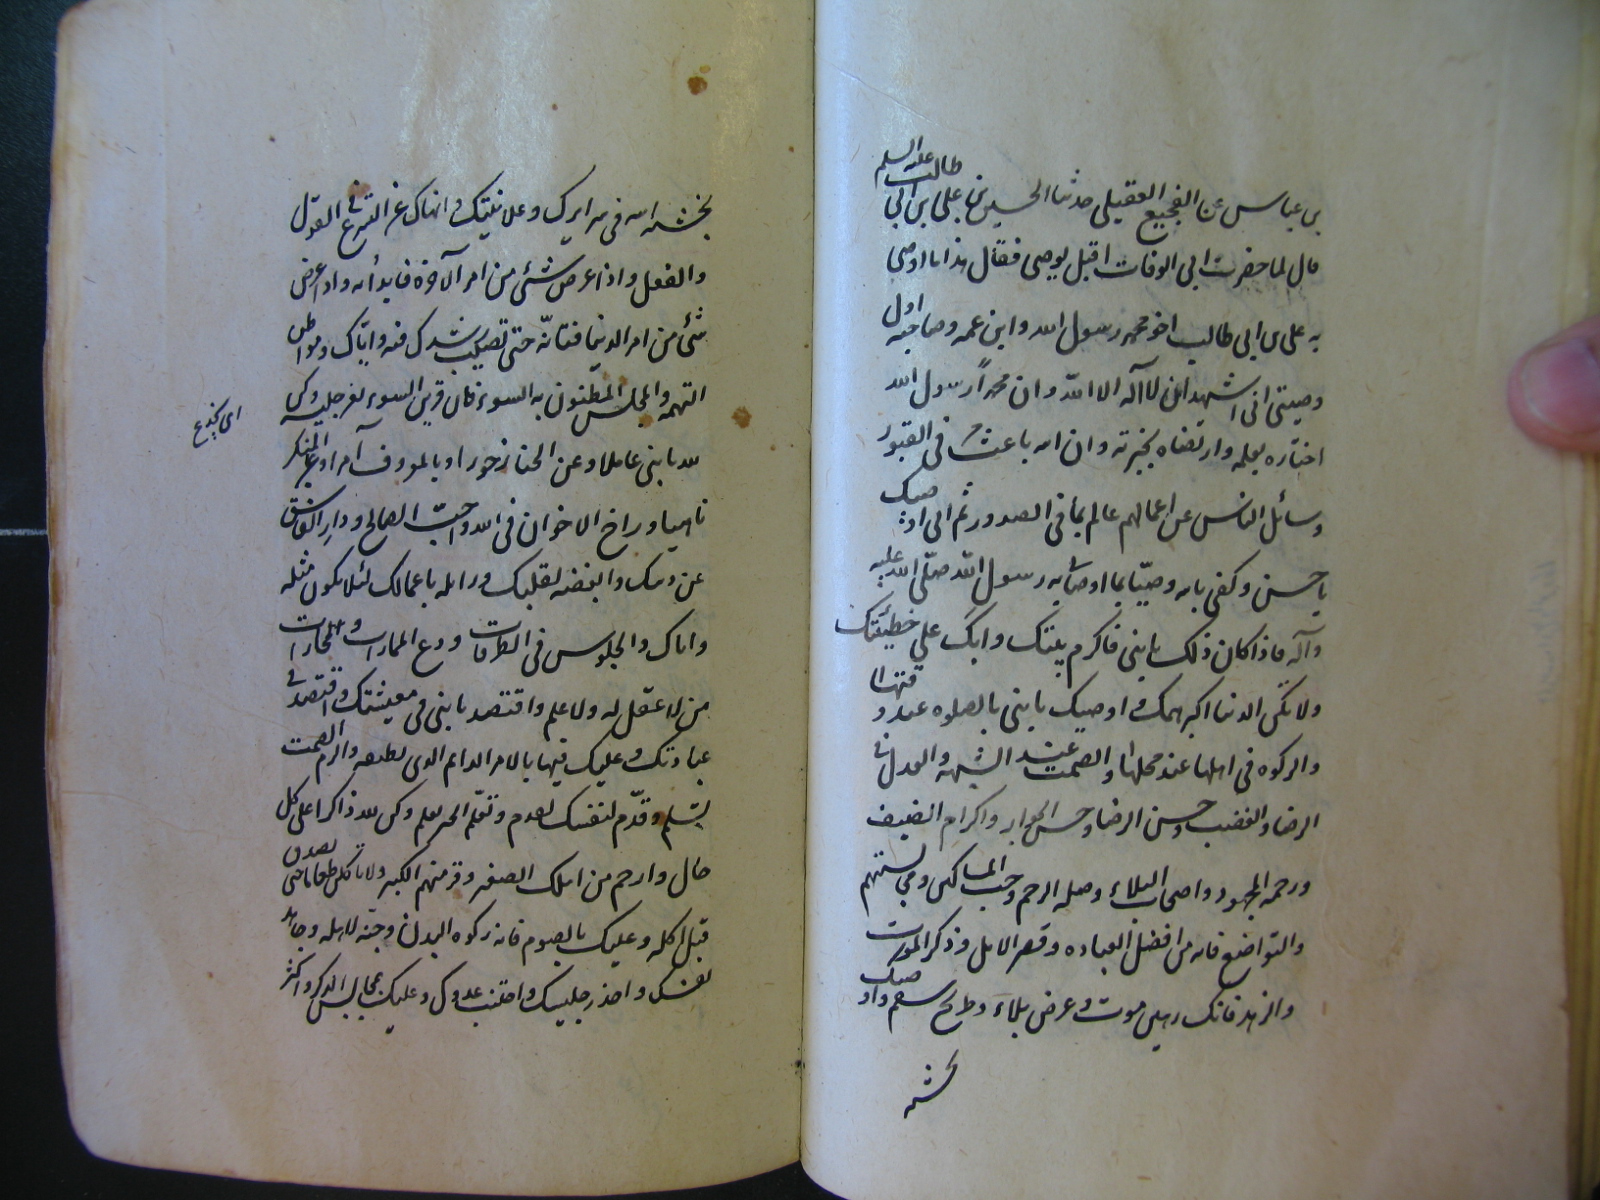 بن عباس عن الفجيع العقيلى حدثنا الحسين بن على بن ابى طالب عليه السلم
قال لما حضرت ابى الوفات اقبل يوصى فقال هذا ما اوصى
به على بن ابى طالب اخو محمد رسول الله وابن عمه وصاحبه اول
وصيتى انى اشهد ان لا اله الا الله وان محمداً رسول الله
اختاره بعلمه وارتضاه بخيرته وان الله باعث من فى القبور
وسائل الناس عن اعمالهم عالم بما فى الصدور ثم انى اوصيك
يا حسن وكفى بك وصيّا بما اوصانى به رسول الله صلّى الله عليه
وآله فاذا كان ذلك يا بنى فالزم بيتك وابك على خطيئتك
ولا تكن الدنيا اكبر همك واوصيك يا بنى بالصلوه عند وقتها
والزكوه فى اهلها عند محلها والصمت عند الشبهه والعدل فى
الرضا والغضب وحسن الجوار واكرام الضيف
ورحمه المجهود واصحاب البلاء وصله الرحم وحب المساكين ومجالستهم
والتواضع فانه من افضل العباده وقصر الامل وذكر الموت
والزهد فانك رهين موت وعرض بلاء وطريح سقم واوصيك
بخشيه
بخشيه الله فى سر امرك وعلانيتك وانهاك عن التسرع فى القول
والفعل واذا عرض شئ من امر الآخرة فابدأ به واذا عرض
شئ من امر الدنيا فتأنّه حتى تصيب رشدك فيه واياك ومواطن
التهمه والمجلس المظنون به السوء فان قرين السوء يغر جليسه وكن
اى يخدع
لله يا بنى عاملا وعن الخنا زجورا وبالمعروف آمرا وعن المنكر
ناهيا وواخ الاخوان فى الله واحبّ الصالح ودارِ الفاسق
عن دينك وابغضه بقلبك وزايله باعمالك لئلا تكون مثله
واياك والجلوس فى الطرقات ودع الممارات والمجارات
من لا عقل له ولا علم واقتصد يا بنى فى معيشتك واقتصد فى
عبادتك وعليك فيها بالامر الدائم الذى تطيقه والزم الصمت
تسلم وقدّم لنفسك تغنم وتعلّم الخير تعلم وكن لله ذاكرا على كل
حال وارحم من اهلك الصغير ووقر منهم الكبير ولا تاكلن طعاما حتى تصدق
قبل اكله وعليك بالصوم فانه زكوه البدن وجنه لاهله وجاهد
نفسك واحذر جليسك واجتنب عدوك وعليك بمجالس الذكر واكثر